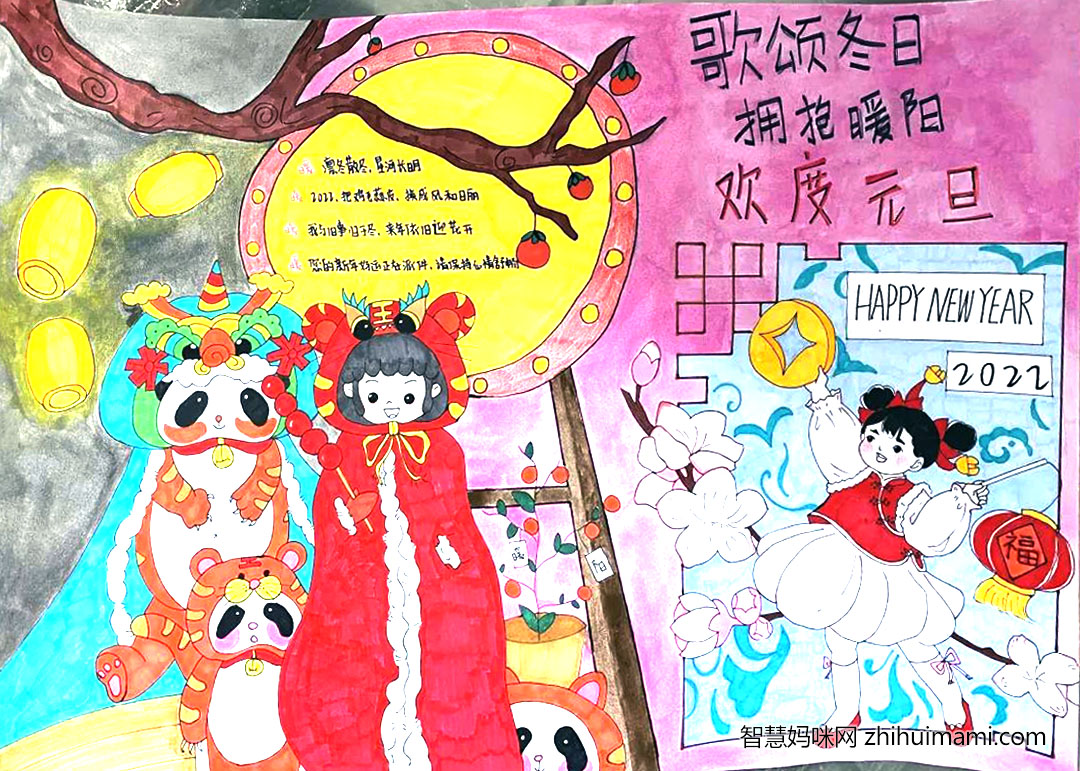 歌颂冬日
拥抱暖阳
欢度元旦
凛冬散尽，星河长明
2022，把鸡毛蒜皮，换成风和日丽
我与旧事归于冬，来年依旧迎花开
您的新年好运正在派件，请保持心情舒畅
HAPPY NEW YEAR
2022
福
暖
阳
智慧妈咪网 zhihuimami.com